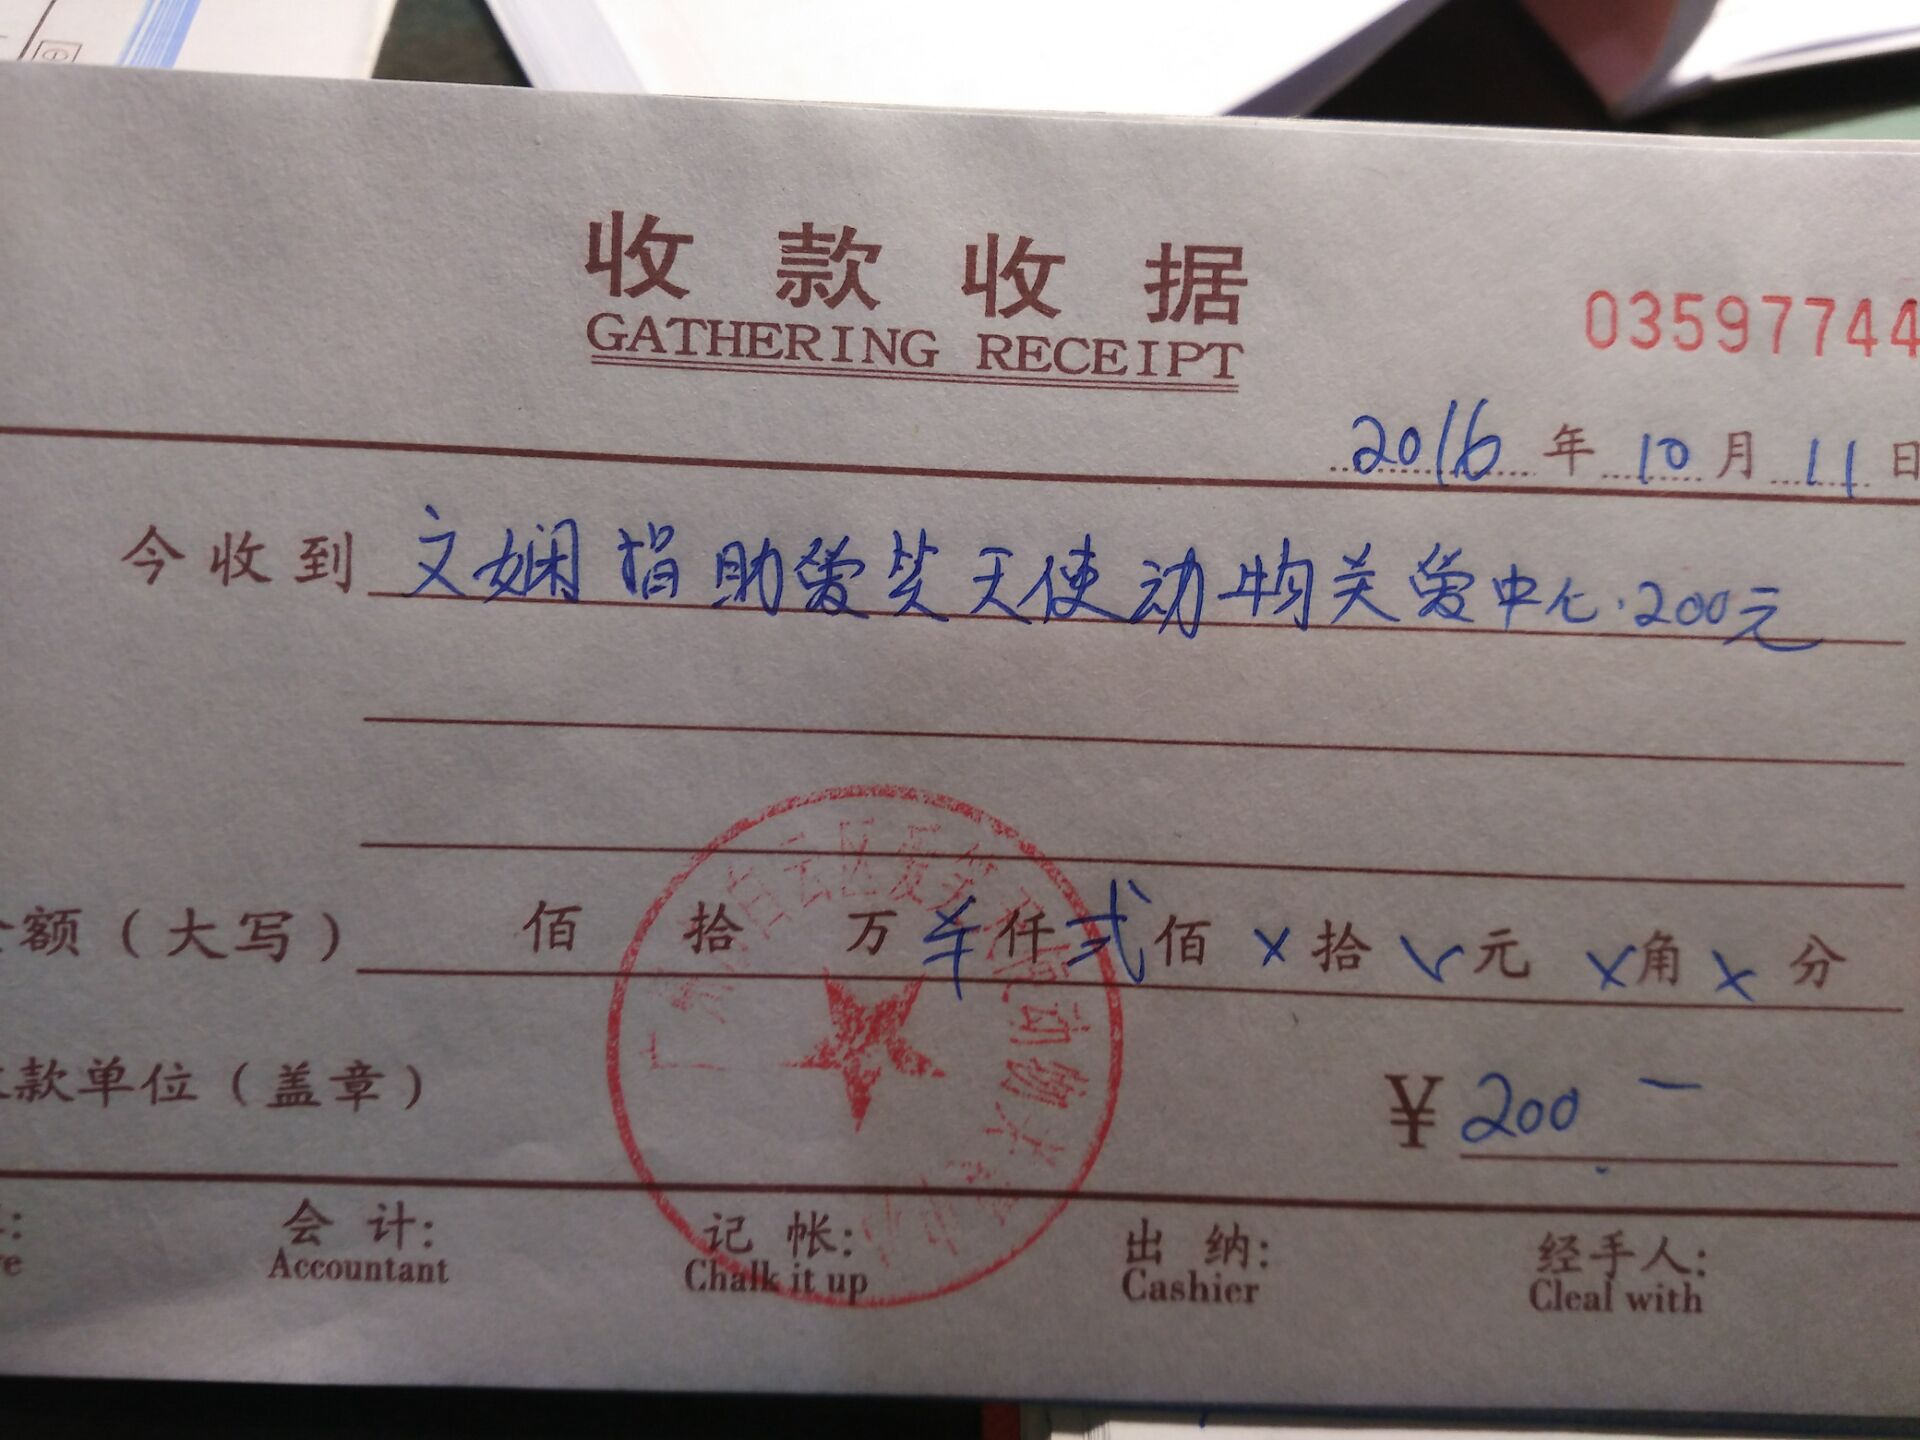 收款收据
GATHERING RECEIPT
03597744
2016年10月11日
今收到 文娴捐助爱笑天使动物关爱中心·200元
额(大写) 佰 拾 万 仟 弍佰 ×拾 元 ×角 × 分
款单位(盖章) ¥200 —
会计: 记帐: 出纳: 经手人:
Accountant Chalk it up Cashier Cleal with